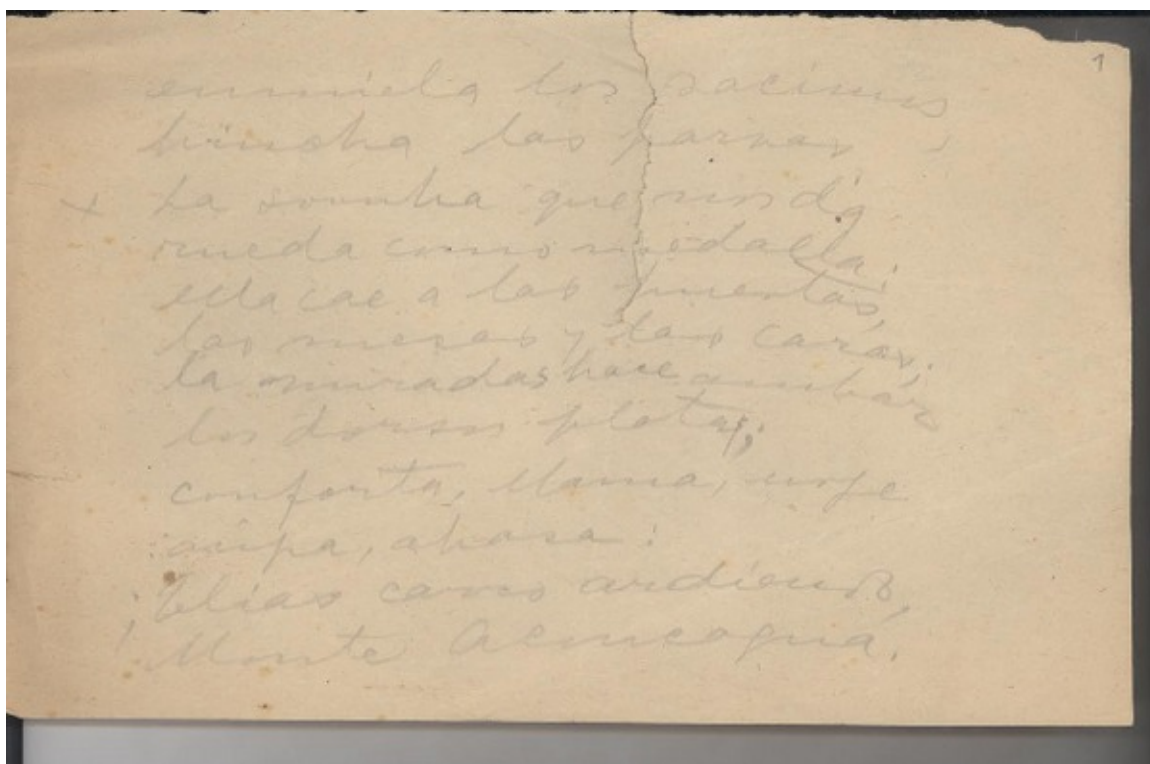 1
enmiela los racimos
hincha las parvas,
x La sombra que nos da
rueda como medalla;
ella cae a las puertas,
las mesas y las caras;
la miradas hace ambar
los dorsos platas;
conforta, llama, urge
abrasa:
¡Elias carro ardiendo,
Monte Aconcagua.